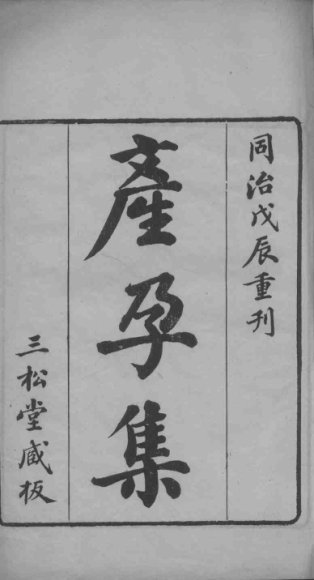 同治戊辰重刊
產孕集
三松堂臧板